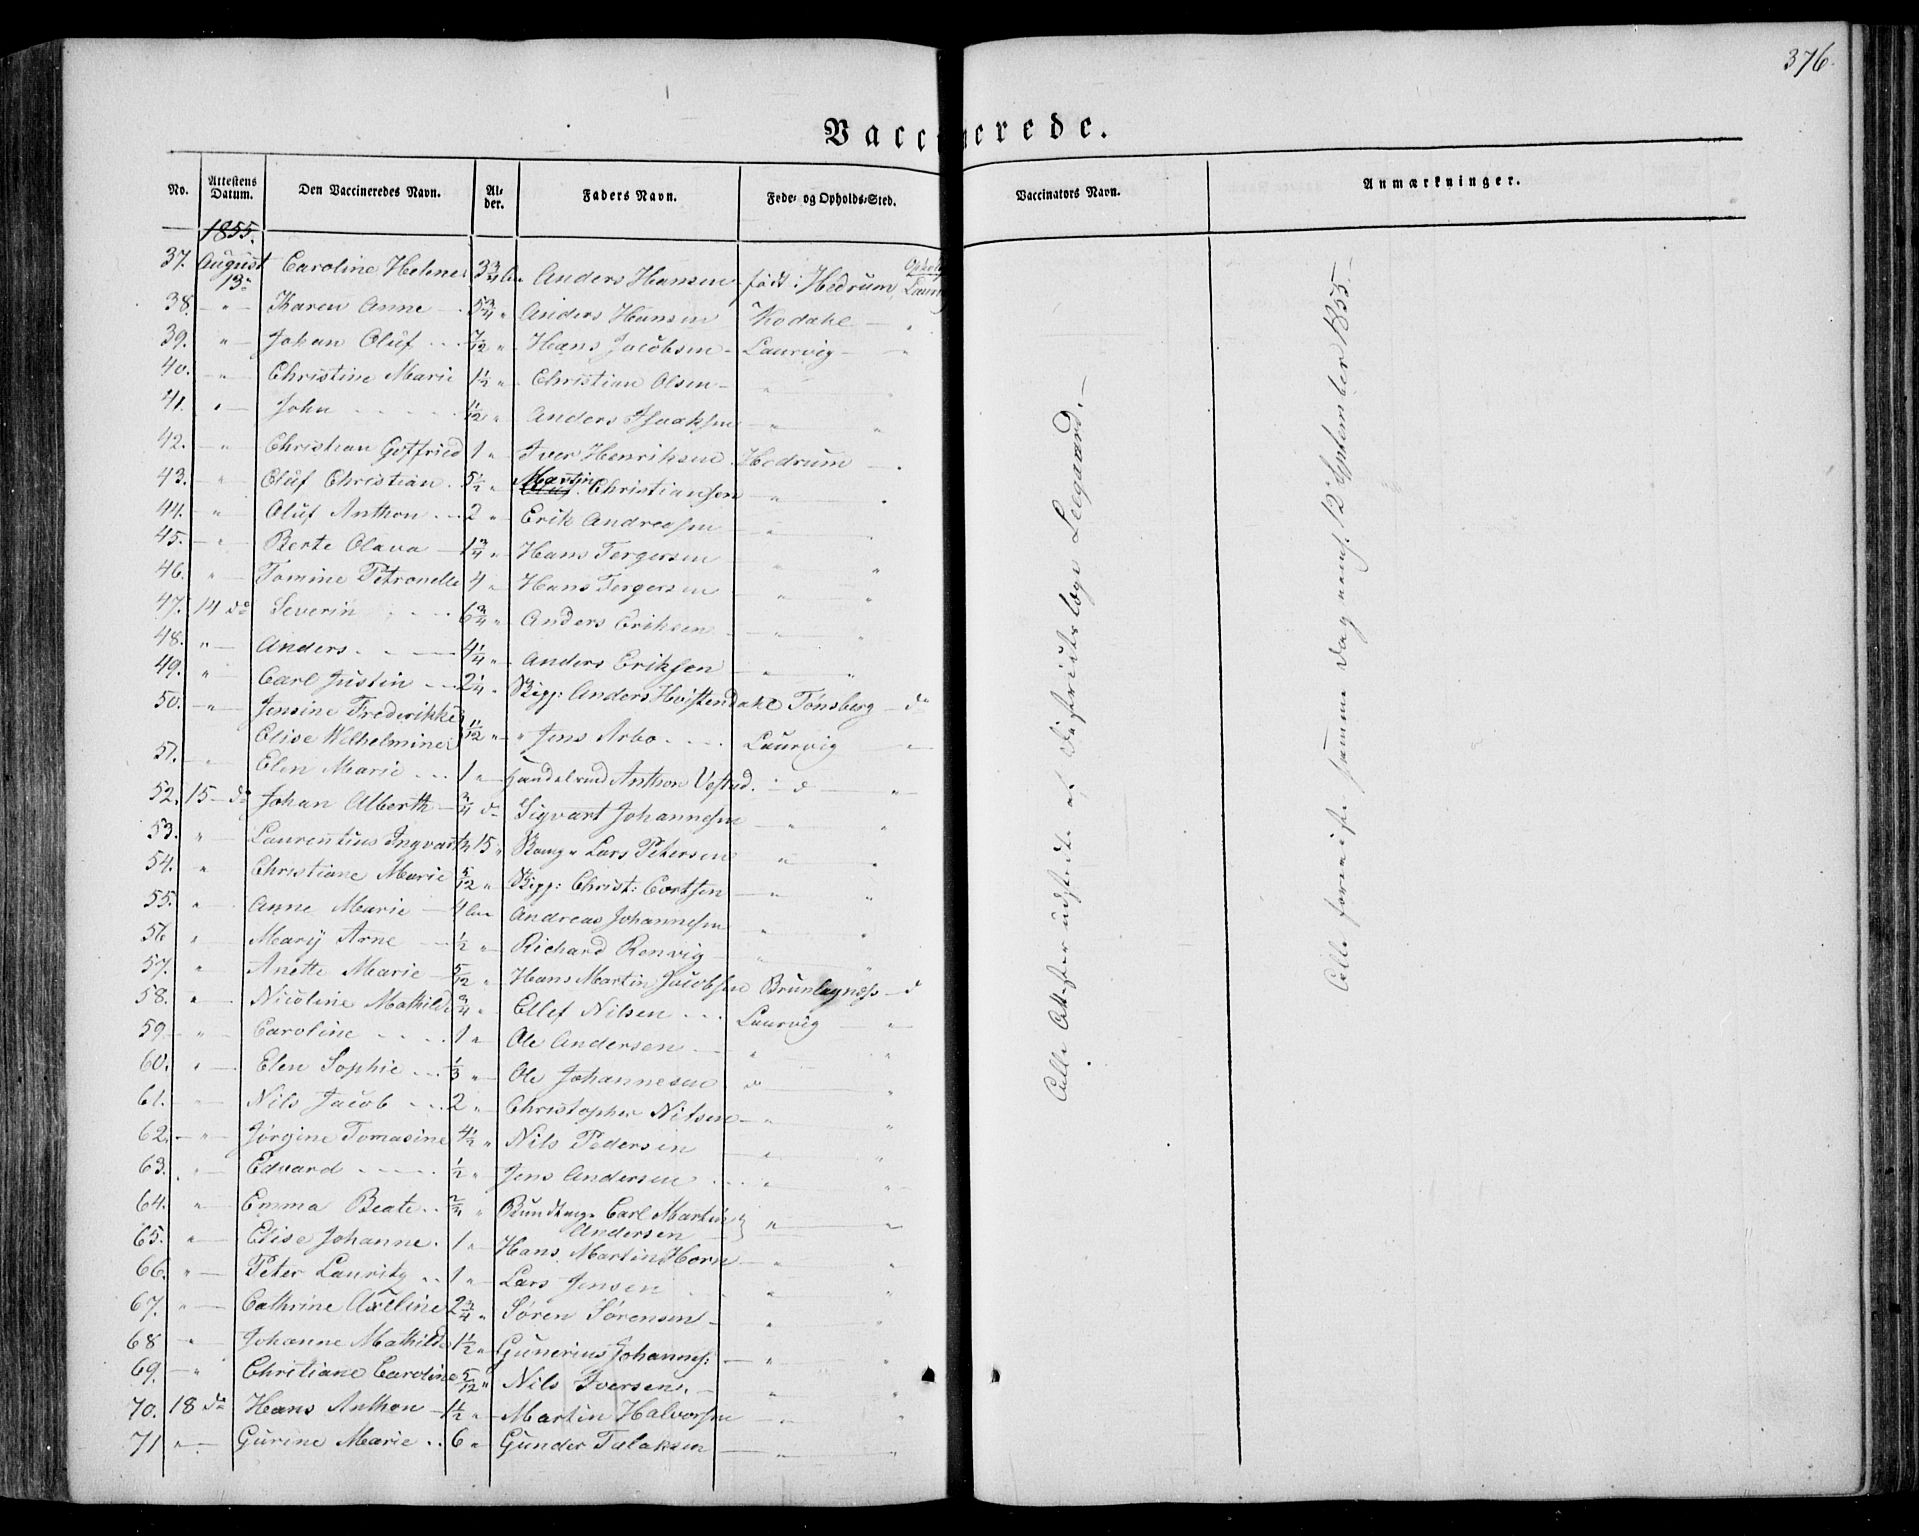 376.
Vaccinerede.
No. Attestens Datum. Den Vaccineredes Navn. Al-der. Faders Navn. Føde- og Opholds-Sted. Vaccinators Navn. Anmærkninger.
1855.
37. August 13. Caroline Helene 3 3/4 Anders Hansen født i Hedrum, Laurvig
38. " Karen Anne 5 3/4 " Anders Hansen Kodahl "
39. " Johan Oluf 7/12 " Hans Jacobsen Laurvig "
40. " Christine Marie 1 1/2 " Christian Olsen " "
41. " John 11/12 " Anders Isaaksen " "
42. " Christian Gotfried 1 " Iver Henriksen Hedrum "
43. " Oluf Christian 5 1/2 " Martin Christiansen " "
44. " Oluf Anthon 2 " Erik Andreasen " "
45. " Berte Olava 1 3/4 " Hans Tergersen " "
46. " Tomine Petronelle 4 " Hans Tergersen " "
47. 14 do Severin 6 3/4 " Anders Eriksen " "
48. " Anders 4 1/4 " Anders Eriksen " "
49. " Carl Justin 2 1/4 " Skipp: Anders Hvistendahl Tønsberg do
50. " Jensine Frederikke
Elise Wilhelmine 11/12 " " Jens Arbo Laurvig "
51. " Elen Marie 1 " Handelsmd Anthon Vestad d "
52. 15 do Johan Alberth 3/4 do Sigvart Johannesen " "
53. " Laurentius Ingvarth 15 " Lars Petersen " "
54. " Christiane Marie 5/12 " Skipp: Christ: Cortsen " "
55. " Anne Marie 4 Andreas Johannesen " "
56 " Mary Arne 1/2 " Richard Renvig " "
57. " Anette Marie 5/12 " Hans Martin Jacobsen Brunlagnæss d
58. " Nicoline Mathilde 3/4 " Ellef Nilsen Laurvig "
59 " Caroline 1 " Ole Andersen " "
60. " Elen Sophie 1/3 " Ole Johannesen " "
61. " Nils Jacob 2 " Christopher Nilsen " "
62. " Jørgine Tomasine 4 1/2 " Nils Pedersen " "
63. " Edvard 1/2 " Jens Andersen " "
64. " Emma Beate 3/4 " Carl Martin
Andersen " "
65. " Elise Johanne 1 " Hans Martin Horn " "
66. " Peter Lauritz 1 " Lars Jensen " "
67. " Cathrine Axeline 2 3/4 " Søren Sørensen " "
68 " Johanne Mathilde 1 1/2 " Gunerius Johannes: " "
69. " Chritiane Caroline 5/12 " Nils Iversen " "
70. 18 do Hans Anthon 1 1/2 " Martin Halvorsen " "
71 " Gurine Marie 6 " Gunder Talaksen " "
Alle Attester udstedte af Distriktslæge Legaard.
Alle forevist samme Dag 12 September 1855.